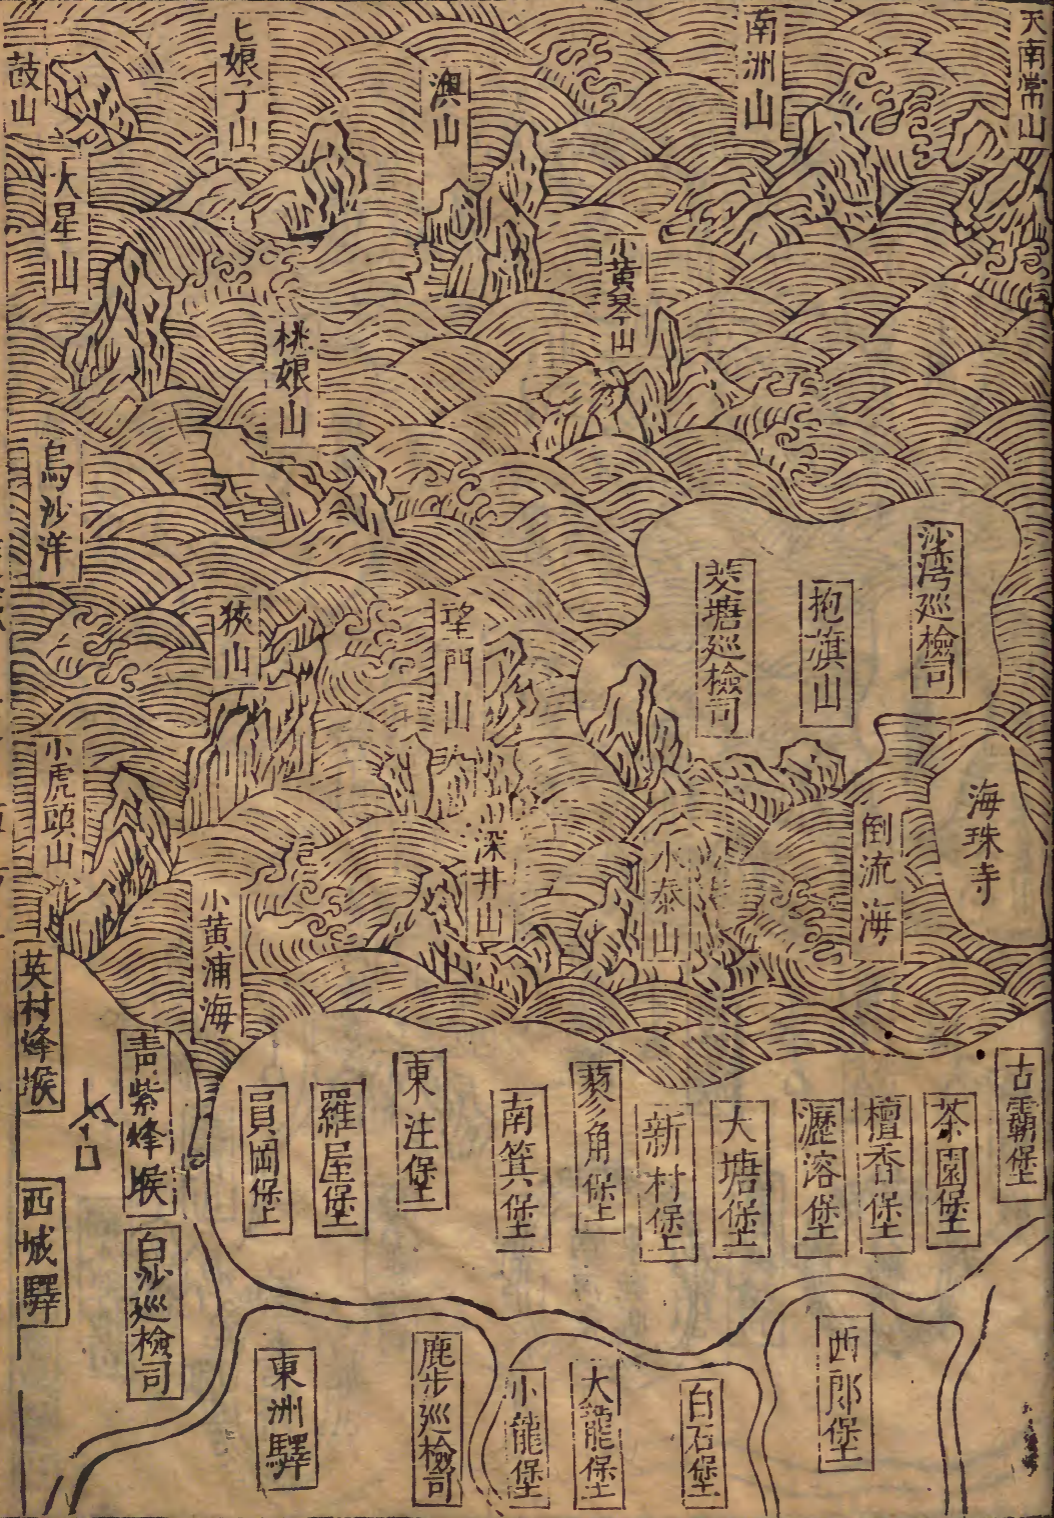 天南常山
南洲山
澳山
七娘子山
鼓山
大星山
小黃琴山
桃娘山
烏沙洋
沙灣巡檢司
抱旗山
茭塘巡檢司
望門山
狹山
小虎頭山
海珠寺
倒流海
小泰山
深井山
小黃浦海
英村烽堠
青紫烽堠
古霸堡
茶園堡
檀香堡
瀝滘堡
大塘堡
新村堡
蓼角堡
南箕堡
東注堡
羅屋堡
員岡堡
西城驛
白沙巡檢司
西郎堡
白石堡
大龍堡
小龍堡
鹿步巡檢司
東洲驛